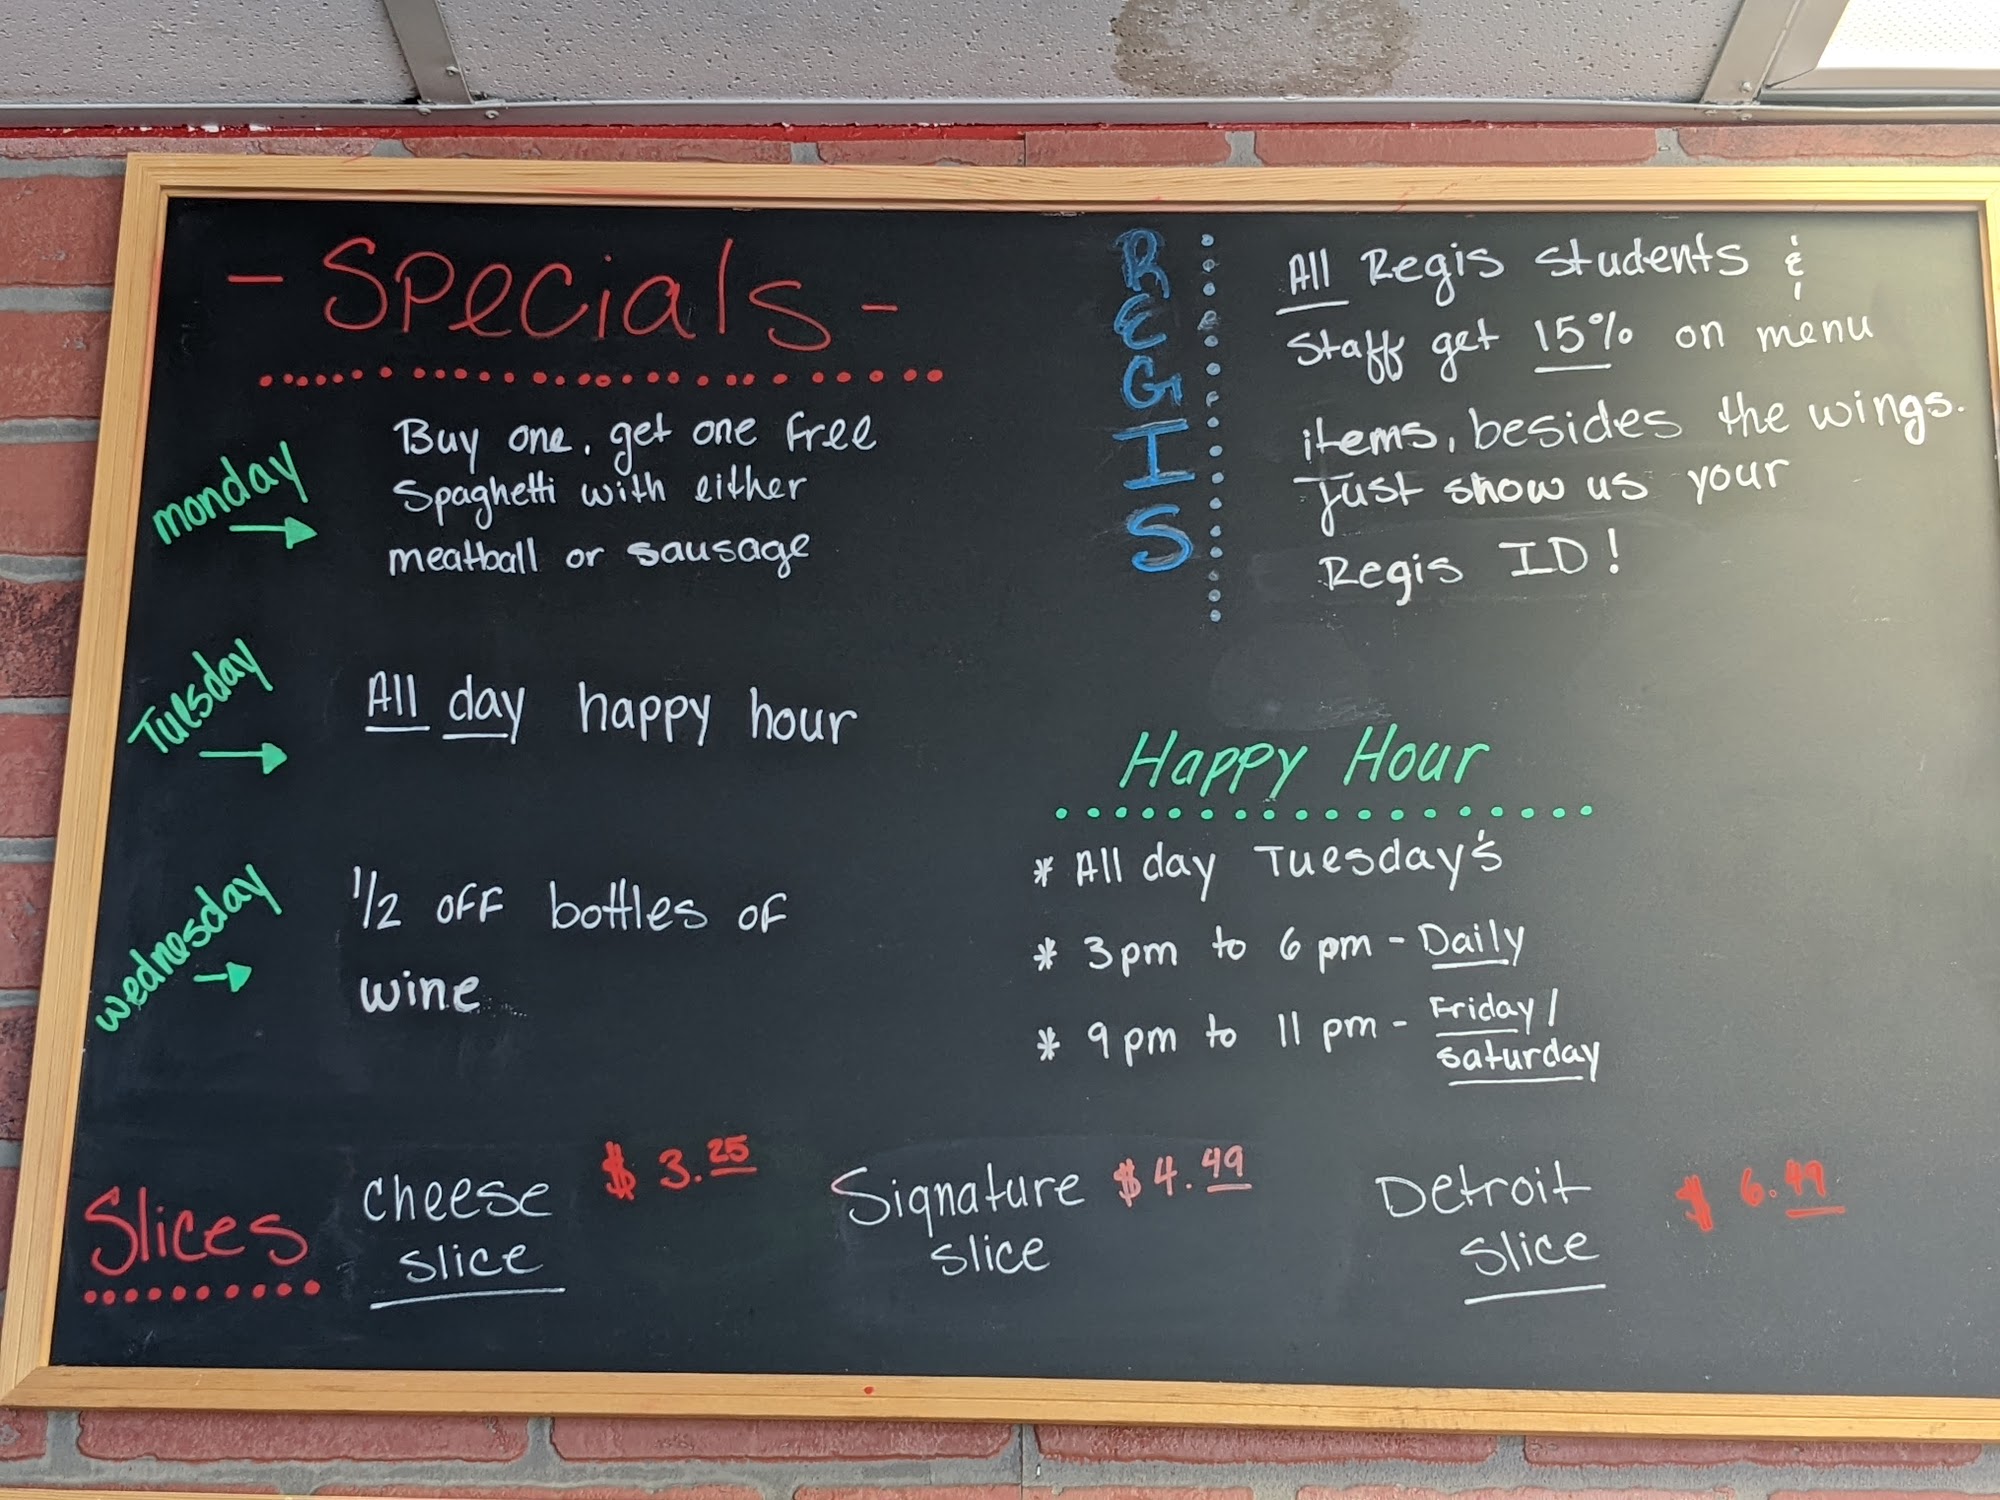 - Specials -
monday
Buy one, get one free
Spaghetti with either
meatball or sausage
Tuesday
All day happy hour
wednesday
1/2 off bottles of
wine
REGIS
All Regis students &
Staff get 15% on menu
items, besides the wings.
Just show us your
Regis ID!
Happy Hour
* All day Tuesday's
* 3pm to 6pm - Daily
* 9pm to 11pm - Friday/
Saturday
Slices
Cheese $3.25
slice
Signature $4.49
slice
Detroit $6.49
Slice